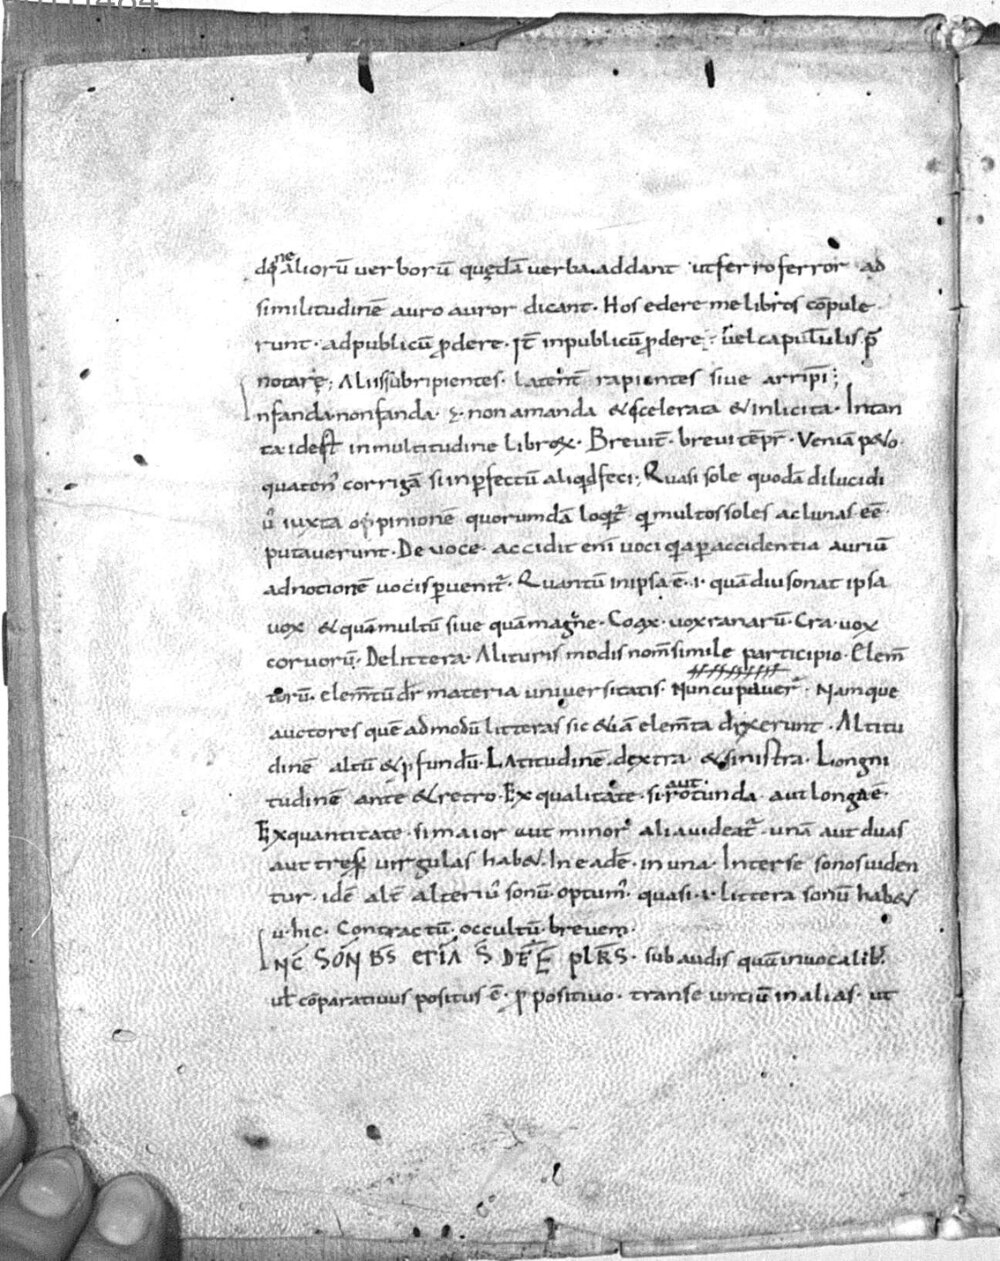 aliorū uerborū quędā uerba addant ut ferro ferror ad
similitudinē auro auror dicant. Hos edere me libros cōpule
runt. ad publicū ꝓdere. it̄ in publicū ꝓdere. uel capitulis p̄
notare; Aliis subripientes. latent̄ rapientes siue arripi;
Infanda. non fanda. non amanda & scelerata & inlicita. In tan
ta. id est in multitudine libroꝝ. Breuit̄. breui tēpr̄. Veniā p&o
quaten' corrigā si inꝑfectū aliqd feci; Quasi sole quodā dilucidi
iuxta oppinionē quorumdā multos soles ac lunas eē
putauerunt. De uoce. accidit eni uoci accidentia auriū
ad notionē uocis ꝑuenit. Quantū in ipsa ē. i. quā diu sonat ipsa
uox & quā multū siue quā magne. Coax. uox ranarū. Cra. uox
coruorū. De littera. Alituris modis nom̄ simile participio. Elem̄
torū. elem̄tū dr̄ materia uniuersitatis. Nuncupauer̄. Namque
auctores quē admodū litteras sic &iā elem̄ta dixerunt. Altitu
dinē altū & ꝓfundū. Latitudinē. dextra & sinistra. Longi
tudinē ante & retro. Ex qualitate. si aut rotunda aut longa ē.
Ex quantitate. si maior aut minor. alia uideat̄. unā aut duas
aut tres uirgulas hab&. In eadē. in una. Inter se sonos uiden
tur. idē alt̄ alteriu' sonū. optum̄. quasi. a. littera sonū hab&
u. hic. Contractū. occultū. breuem.
plRS. sub audis quā in uocalib;
ul cōparatiuus positus ē. ꝓ positiuo. transeuntiū in alias. ut